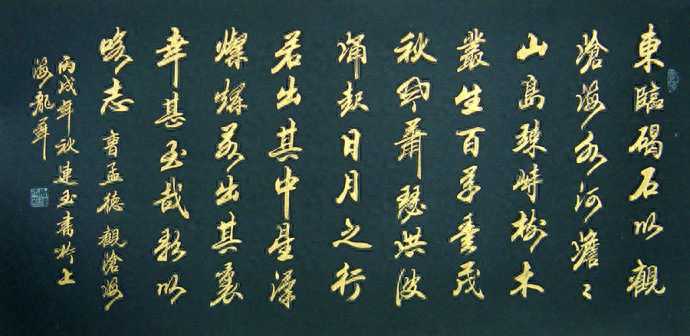 東臨碣石以觀
滄海水河澹〻
山島竦峙樹木
叢生百草豐茂
秋風蕭瑟洪波
涌起日月之行
若出其中星漢
燦爛若出其裏
幸甚至哉歌以
詠志 曹孟德觀滄海
丙戌年秋連玉書於上
海龍華